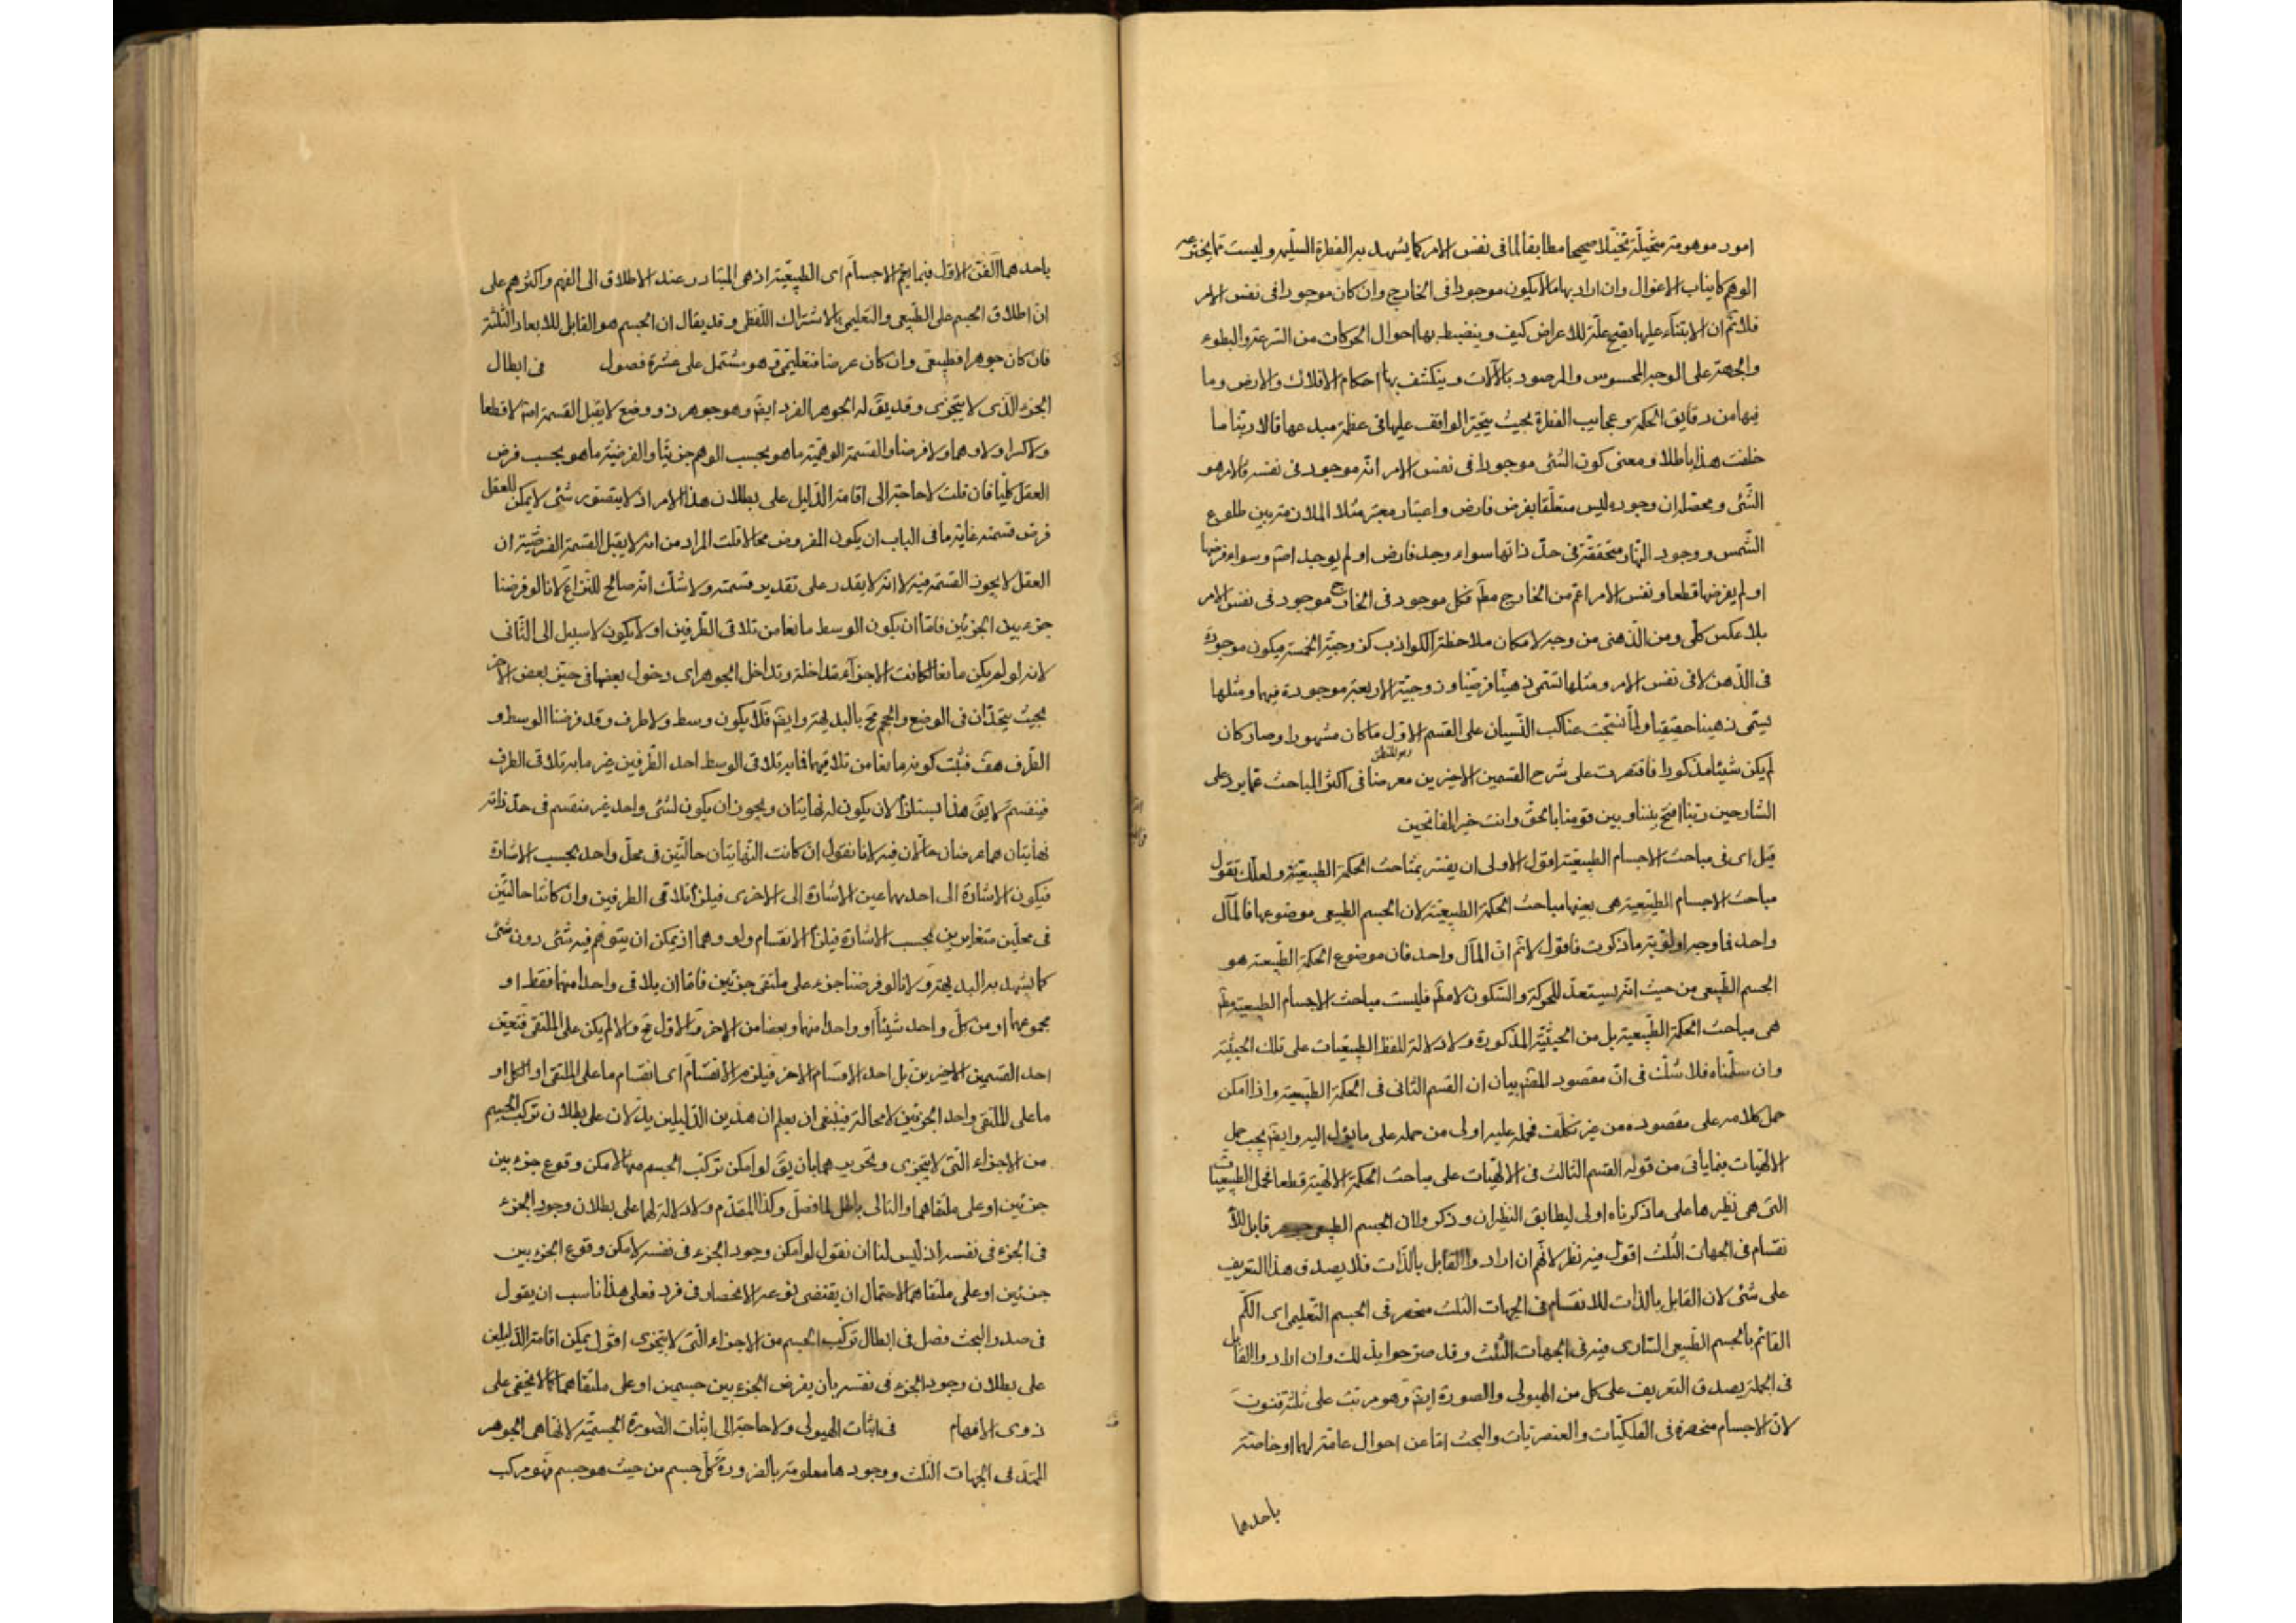 امور موهومة متخيلة تخيلا صحيحا مطابقا لما فى نفس الامر كما يشهد به الفطرة السليمة وليست مما يخترعه
الوهم كانياب الاغوال وان اراد بها ما لا يكون موجودا فى الخارج وان كان موجودا فى نفس الامر
فلا نم ان الابتناء عليها يقيح علة للاعراض كيف وينضبط بها احوال الحركات من السرعة والبطوء
والجهة على الوجه المحسوس والمرصود بالآلات وينكشف بها احكام الافلاك والارض وما
فيها من دقايق الحكمة وعجايب الفطرة بحيث يتحير الواقف عليها فى عظمة مبدعها قائلا ربنا ما
خلقت هذا باطلا ومعنى كون الشئ موجودا فى نفس الامر انه موجود فى نفسه فالامر هو
الشئ ومحصله ان وجوده ليس متعلقا بفرض فارض واعتبار معتبر مثلا الملازمة بين طلوع
الشمس ووجود النهار متحققة فى حد ذاتها سواء وجد فارض او لم يوجد اصم وسواء فرضها
او لم يفرضها قطعا ونفس الامر اعم من الخارج مطم فكل موجود فى الخارج موجود فى نفس الامر
بلا عكس كلى ومن الذهنى من وجه لامكان ملاحظة الكواذب كزوجية الخمسة فيكون موجودة
فى الذهن لا فى نفس الامر ومثلها تسمى ذهنيا فرضيا وزوجية الاربعة موجودة فيهما ومثلها
يسمى ذهنيا حقيقيا ولما نسجت عناكب النسيان على القسم الاول ما كان مشهورا وصار كان
وهو المنطق
لم يكن شيئا مذكورا فاقتصرت على شرح القسمين الاخيرين معرضا فى اكثر المباحث عما يورد على
الشارحين ربنا افتح بيننا وبين قومنا بالحق وانت خير الفاتحين
قيل اى فى مباحث الاجسام الطبيعية اقول الاولى ان يفسر بمباحث الحكمة الطبيعية ولعلك تقول
مباحث الاجسام الطبيعية هى بعينها مباحث الحكمة الطبيعية لان الجسم الطبيعى موضوعها فالمآل
واحد فما وجه اولوية ما ذكرت فاقول لا نم ان المآل واحد فان موضوع الحكمة الطبيعية هو
الجسم الطبيعى من حيث انه يستعد للحركة والسكون لا مطم فليست مباحث الاجسام الطبيعية مطم
هى مباحث الحكمة الطبيعية بل من الحيثية المذكورة ولا دلالة للفظ الطبيعيات على تلك الحيثية
وان سلمناه فلا شك فى ان مقصود المقم بيان ان القسم الثانى فى الحكمة الطبيعية واذا امكن
حمل كلامه على مقصوده من غير تكلف فحمله عليه اولى من حمله على ما يؤل اليه وايضم يجب حمل
الالهيات فيما يأتى من قوله القسم الثالث فى الالهيات على مباحث الحكمة الالهية قطعا فحمل الطبيعيات
التى هى نظيرها على ما ذكرناه اولى ليطابق النظيران وذكروا ان الجسم الطبيعى جوهر قابل للا
نقسام فى الجهات الثلث اقول فيه نظر لانهم ان ارادوا القابل بالذات فلا يصدق هذا التعريف
على شئ لان القابل بالذات للانقسام فى الجهات الثلث منحصر فى الجسم التعليمى اى الكم
القائم بالجسم الطبيعى السارى فيه فى الجهات الثلث وقد صرحوا بذلك وان ارادوا القابل
فى الجملة يصدق التعريف على كل من الهيولى والصورة ايضم وهو مرتب على ثلثة فنون
لان الاجسام منحصرة فى الفلكيات والعنصريات والبحث اما عن احوال عامة لهما او خاصة
باحدهما
باحدهما الفن الاول فيما يعم الاجسام اى الطبيعية اذ هى المتبادر عند الاطلاق الى الفهم واكثرهم على
ان اطلاق الجسم على الطبيعى والتعليمى بالاشتراك اللفظى وقد يقال ان الجسم هو القابل للابعاد الثلثة
فان كان جوهرا فطبيعى وان كان عرضا فتعليمى وهو مشتمل على عشرة فصول فى ابطال
الجزء الذى لا يتجزى وقد يق له الجوهر الفرد ايضم وهو جوهر ذو وضع لا يقبل القسمة اصم لا قطعا
ولا كسرا ولا وهما ولا فرضا والقسمة الوهمية ما هو بحسب الوهم جزئيا والفرضية ما هو بحسب فرض
العقل كليا فان قلت لا حاجة الى اقامة الدليل على بطلان هذا الامر اذ لا يتصور شئ لا يمكن للعقل
فرض قسمته غاية ما فى الباب ان يكون المفروض محالا قلت المراد من انه لا يقبل القسمة الفرضية ان
العقل لا يجوز القسمة فيه لا انه لا يقدر على تقدير قسمته ولا شك انه صالح للنزاع لانا لو فرضنا
جزء بين الجزئين فاما ان يكون الوسط مانعا من تلاقى الطرفين او لا يكون لا سبيل الى الثانى
لانه لو لم يكن مانعا لكانت الاجزاء متداخلة وتداخل الجوهر اى دخول بعضها فى حيز بعض الاخر
بحيث يتحدان فى الوضع والحجم مح بالبديهة وايضم فلا يكون وسط ولا طرف وقد فرضنا الوسط و
الطرف هف فثبت كونه مانعا من تلاقيهما فما به تلاقى الوسط احد الطرفين غير ما به تلاقى الطرف
فينقسم لا يق هذا يستلزم لان يكون له نهايتان ويجوز ان يكون لشئ واحد غير منقسم فى حد ذاته
نهايتان هما عرضان حالان فيه لانا نقول ان كانت النهايتان حالتين فى محل واحد بحسب الاشارة
فيكون الاشارة الى احدهما عين الاشارة الى الاخرى فيلزم تلاقى الطرفين وان كانتا حالتين
فى محلين متغايرين بحسب الاشارة فيلزم الانقسام ولو وهما اذ يمكن ان يتوهم فيه شئ دون شئ
كما يشهد به البديهة ولانا لو فرضنا جزء على ملتقى جزئين فاما ان يلاقى واحدا منهما فقط او
مجموعهما او من كل واحد شيئا او واحدا منهما وبعضا من الاخر والاول مح والا لم يكن على الملتقى فتعين
احد القسمين الاخيرين بل احد الاقسام الاخر فيلزم الانقسام اى انقسام ما على الملتقى او الكل او
ما على الملتقى واحد الجزئين لا محالة فينبغى ان يعلم ان هذين الدليلين يدلان على بطلان تركب الجسم
من الاجزاء التى لا يتجزى وتحريرهما بان يق لو امكن تركب الجسم منها لامكن وقوع جزء بين
جزئين او على ملتقاهما والتالى باطل لما فصل وكذا المقدم ولا دلالة لهما على بطلان وجود الجزء
فى الجزء فى نفسه اذ ليس لنا ان نقول لو امكن وجود الجزء فى نفسه لامكن وقوع الجزء بين
جزئين او على ملتقاهما لاحتمال ان يقتضى نوعه الانحصار فى فرد فعلى هذا ناسب ان يقول
فى صدر البحث فصل فى ابطال تركب الجسم من الاجزاء التى لا يتجزى اقول يمكن اقامة الدليلين
على بطلان وجود الجزء فى نفسه بان يفرض الجزء بين جسمين او على ملتقاهما كما لا يخفى على
ذوى الافهام فى اثبات الهيولى ولا حاجة الى اثبات الصورة الجسمية لانها هى الجوهر
الممتد فى الجهات الثلث ووجودها معلومة بالضرورة كل جسم من حيث هو جسم فهو مركب